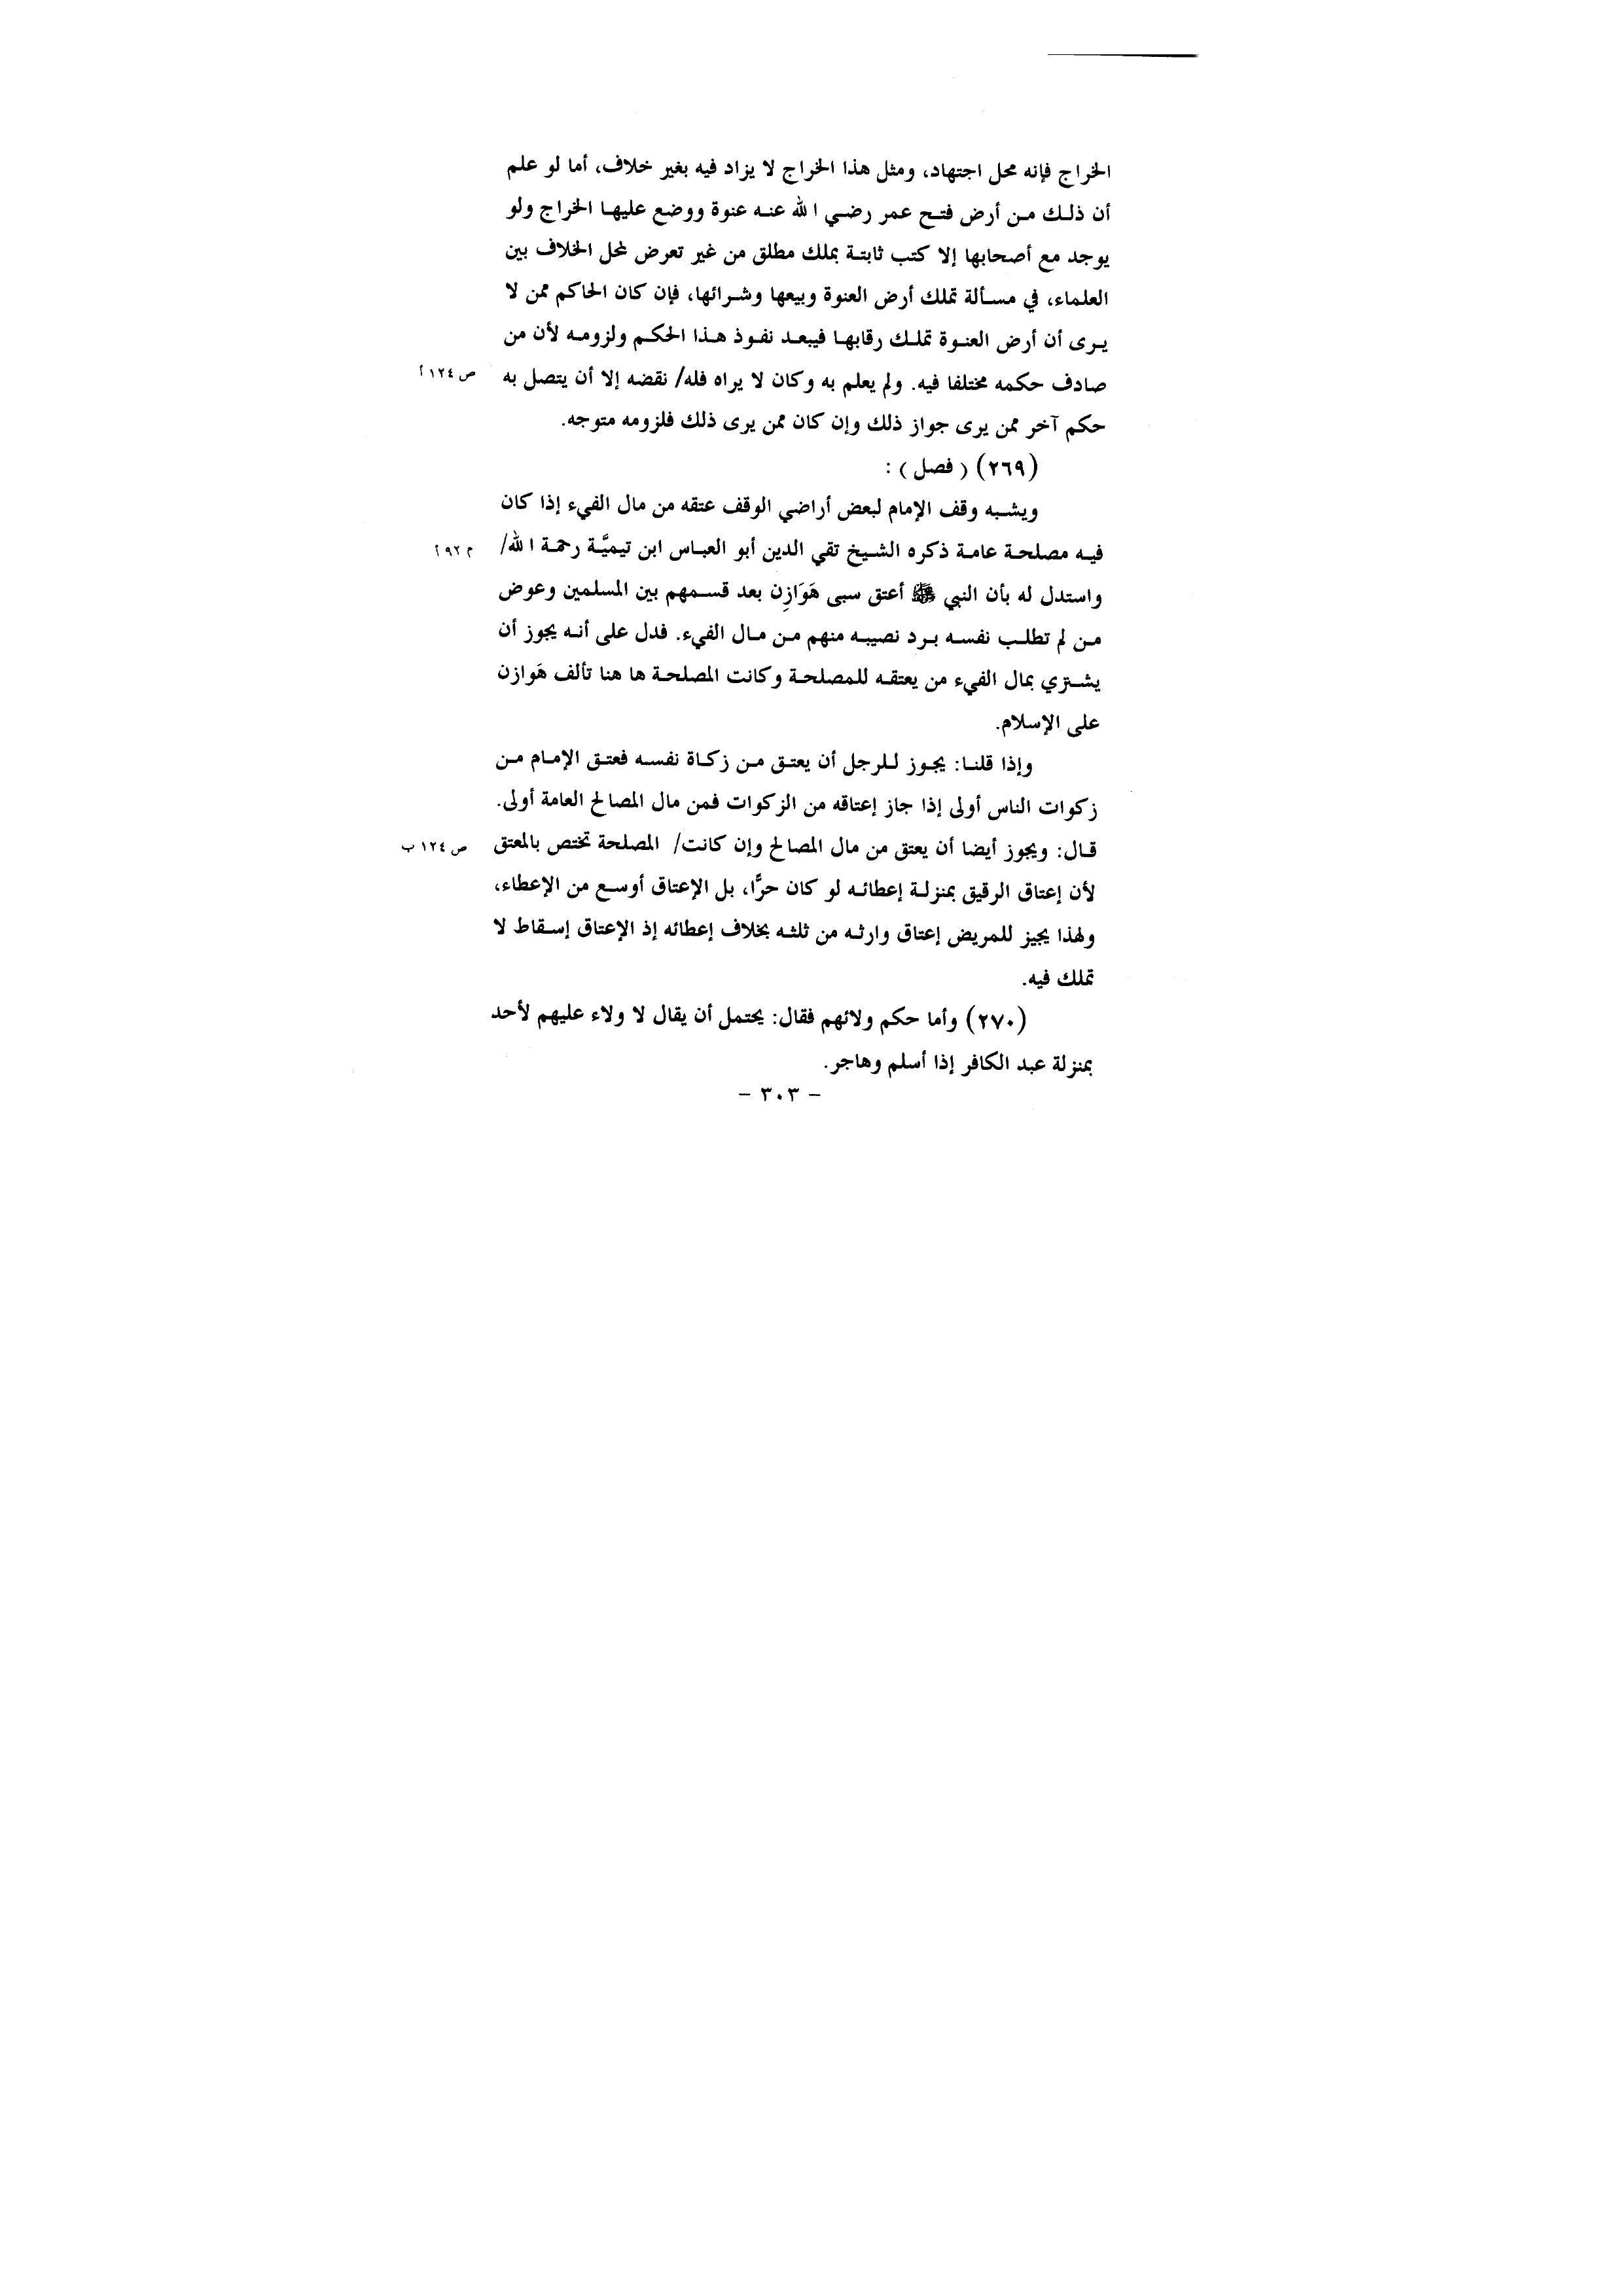 الخراج فإنه محل اجتهاد، ومثل هذا الخراج لا يزاد فيه بغير خلاف، أما لو علم
أن ذلك من أرض فتح عمر رضي الله عنه عنوة ووضع عليها الخراج ولو
يوجد مع أصحابها إلا كتب ثابتة بملك مطلق من غير تعرض لمحل الخلاف بين
العلماء، في مسألة تملك أرض العنوة وبيعها وشرائها، فإن كان الحاكم ممن لا
يرى أن أرض العنوة تملك رقابها فيبعد نفوذ هذا الحكم ولزومه لأن من
صادف حكمه مختلفا فيه. ولم يعلم به وكان لا يراه فله/ نقضه إلا أن يتصل به ص ١٢٤ أ
حكم آخر ممن يرى جواز ذلك وإن كان ممن يرى ذلك فلزومه متوجه.
(٢٦٩) ( فصل ) :
ويشبه وقف الإمام لبعض أراضي الوقف عتقه من مال الفيء إذا كان
فيه مصلحة عامة ذكره الشيخ تقي الدين أبو العباس ابن تيميَّة رحمة الله/ م ٩٢ أ
واستدل له بأن النبي ﷺ أعتق سبى هَوَازِن بعد قسمهم بين المسلمين وعوض
من لم تطلب نفسه برد نصيبه منهم من مال الفيء. فدل على أنه يجوز أن
يشتري بمال الفيء من يعتقه للمصلحة وكانت المصلحة ها هنا تألف هَوازن
على الإسلام.
وإذا قلنا: يجوز للرجل أن يعتق من زكاة نفسه فعتق الإمام من
زكوات الناس أولى إذا جاز إعتاقه من الزكوات فمن مال المصالح العامة أولى.
قال: ويجوز أيضا أن يعتق من مال المصالح وإن كانت/ المصلحة تختص بالمعتق ص ١٢٤ ب
لأن إعتاق الرقيق بمنزلة إعطائه لو كان حرًّا، بل الإعتاق أوسع من الإعطاء،
ولهذا يجيز للمريض إعتاق وارثه من ثلثه بخلاف إعطائه إذ الإعتاق إسقاط لا
تملك فيه.
(٢٧٠) وأما حكم ولائهم فقال: يحتمل أن يقال لا ولاء عليهم لأحد
بمنزلة عبد الكافر إذا أسلم وهاجر.
– ٣٠٣ –